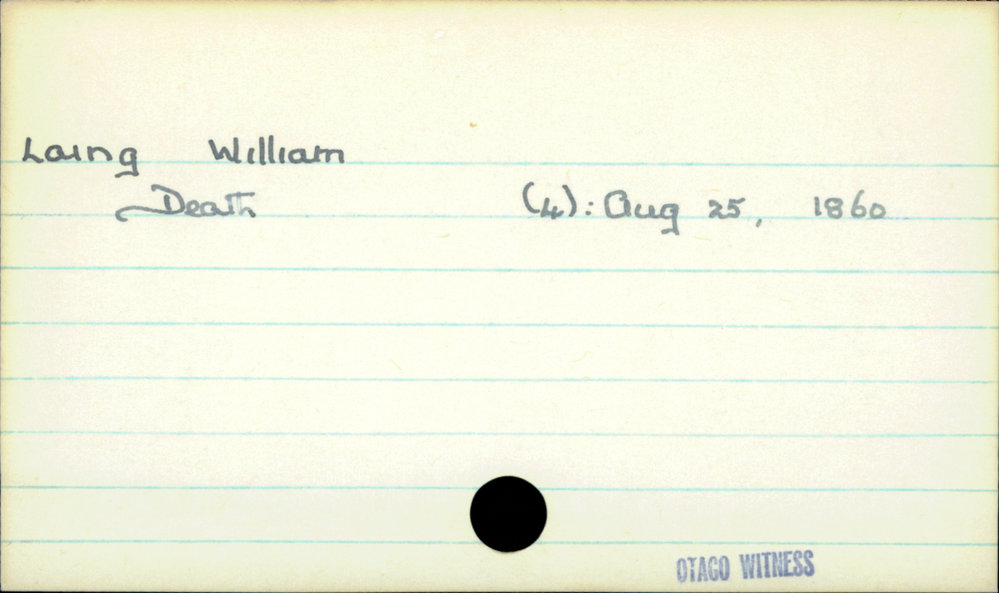 Laing William
Death (4): Aug 25, 1860
OTAGO WITNESS